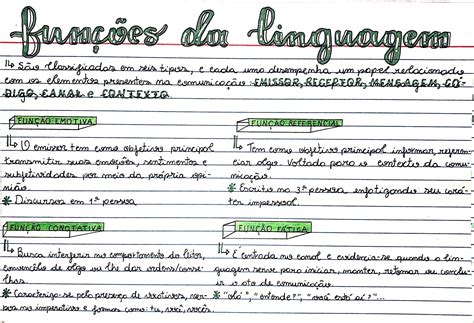 funções da linguagem
São classificadas em seis tipos, e cada uma desempenha um papel relacionado
com os elementos presentes na comunicação: EMISSOR, RECEPTOR, MENSAGEM, CÓ-
DIGO, CANAL e CONTEXTO.
FUNÇÃO EMOTIVA
O emissor tem como objetivo principal
transmitir suas emoções, sentimentos e
subjetividades por meio da própria opi-
nião.
* Discursos em 1ª pessoa
FUNÇÃO REFERENCIAL
Tem como objetivo principal informar, referen-
ciar algo. Voltada para o contexto da comu-
nicação.
* Escrito na 3ª pessoa, enfatizando seu cará-
ter impessoal.
FUNÇÃO CONOTATIVA
Busca interferir no comportamento do leitor,
convencê-lo de algo ou lhe dar ordens/conse-
lhos.
* Caracteriza-se pela presença de vocativos, ver-
bos no imperativo e formas como: tu, você, vocês.
FUNÇÃO FÁTICA
É centrada no canal e evidencia-se quando a lin-
guagem serve para iniciar, manter, retomar ou conclu-
ir o ato de comunicação.
* "olá", "entende?", "você está aí?"...